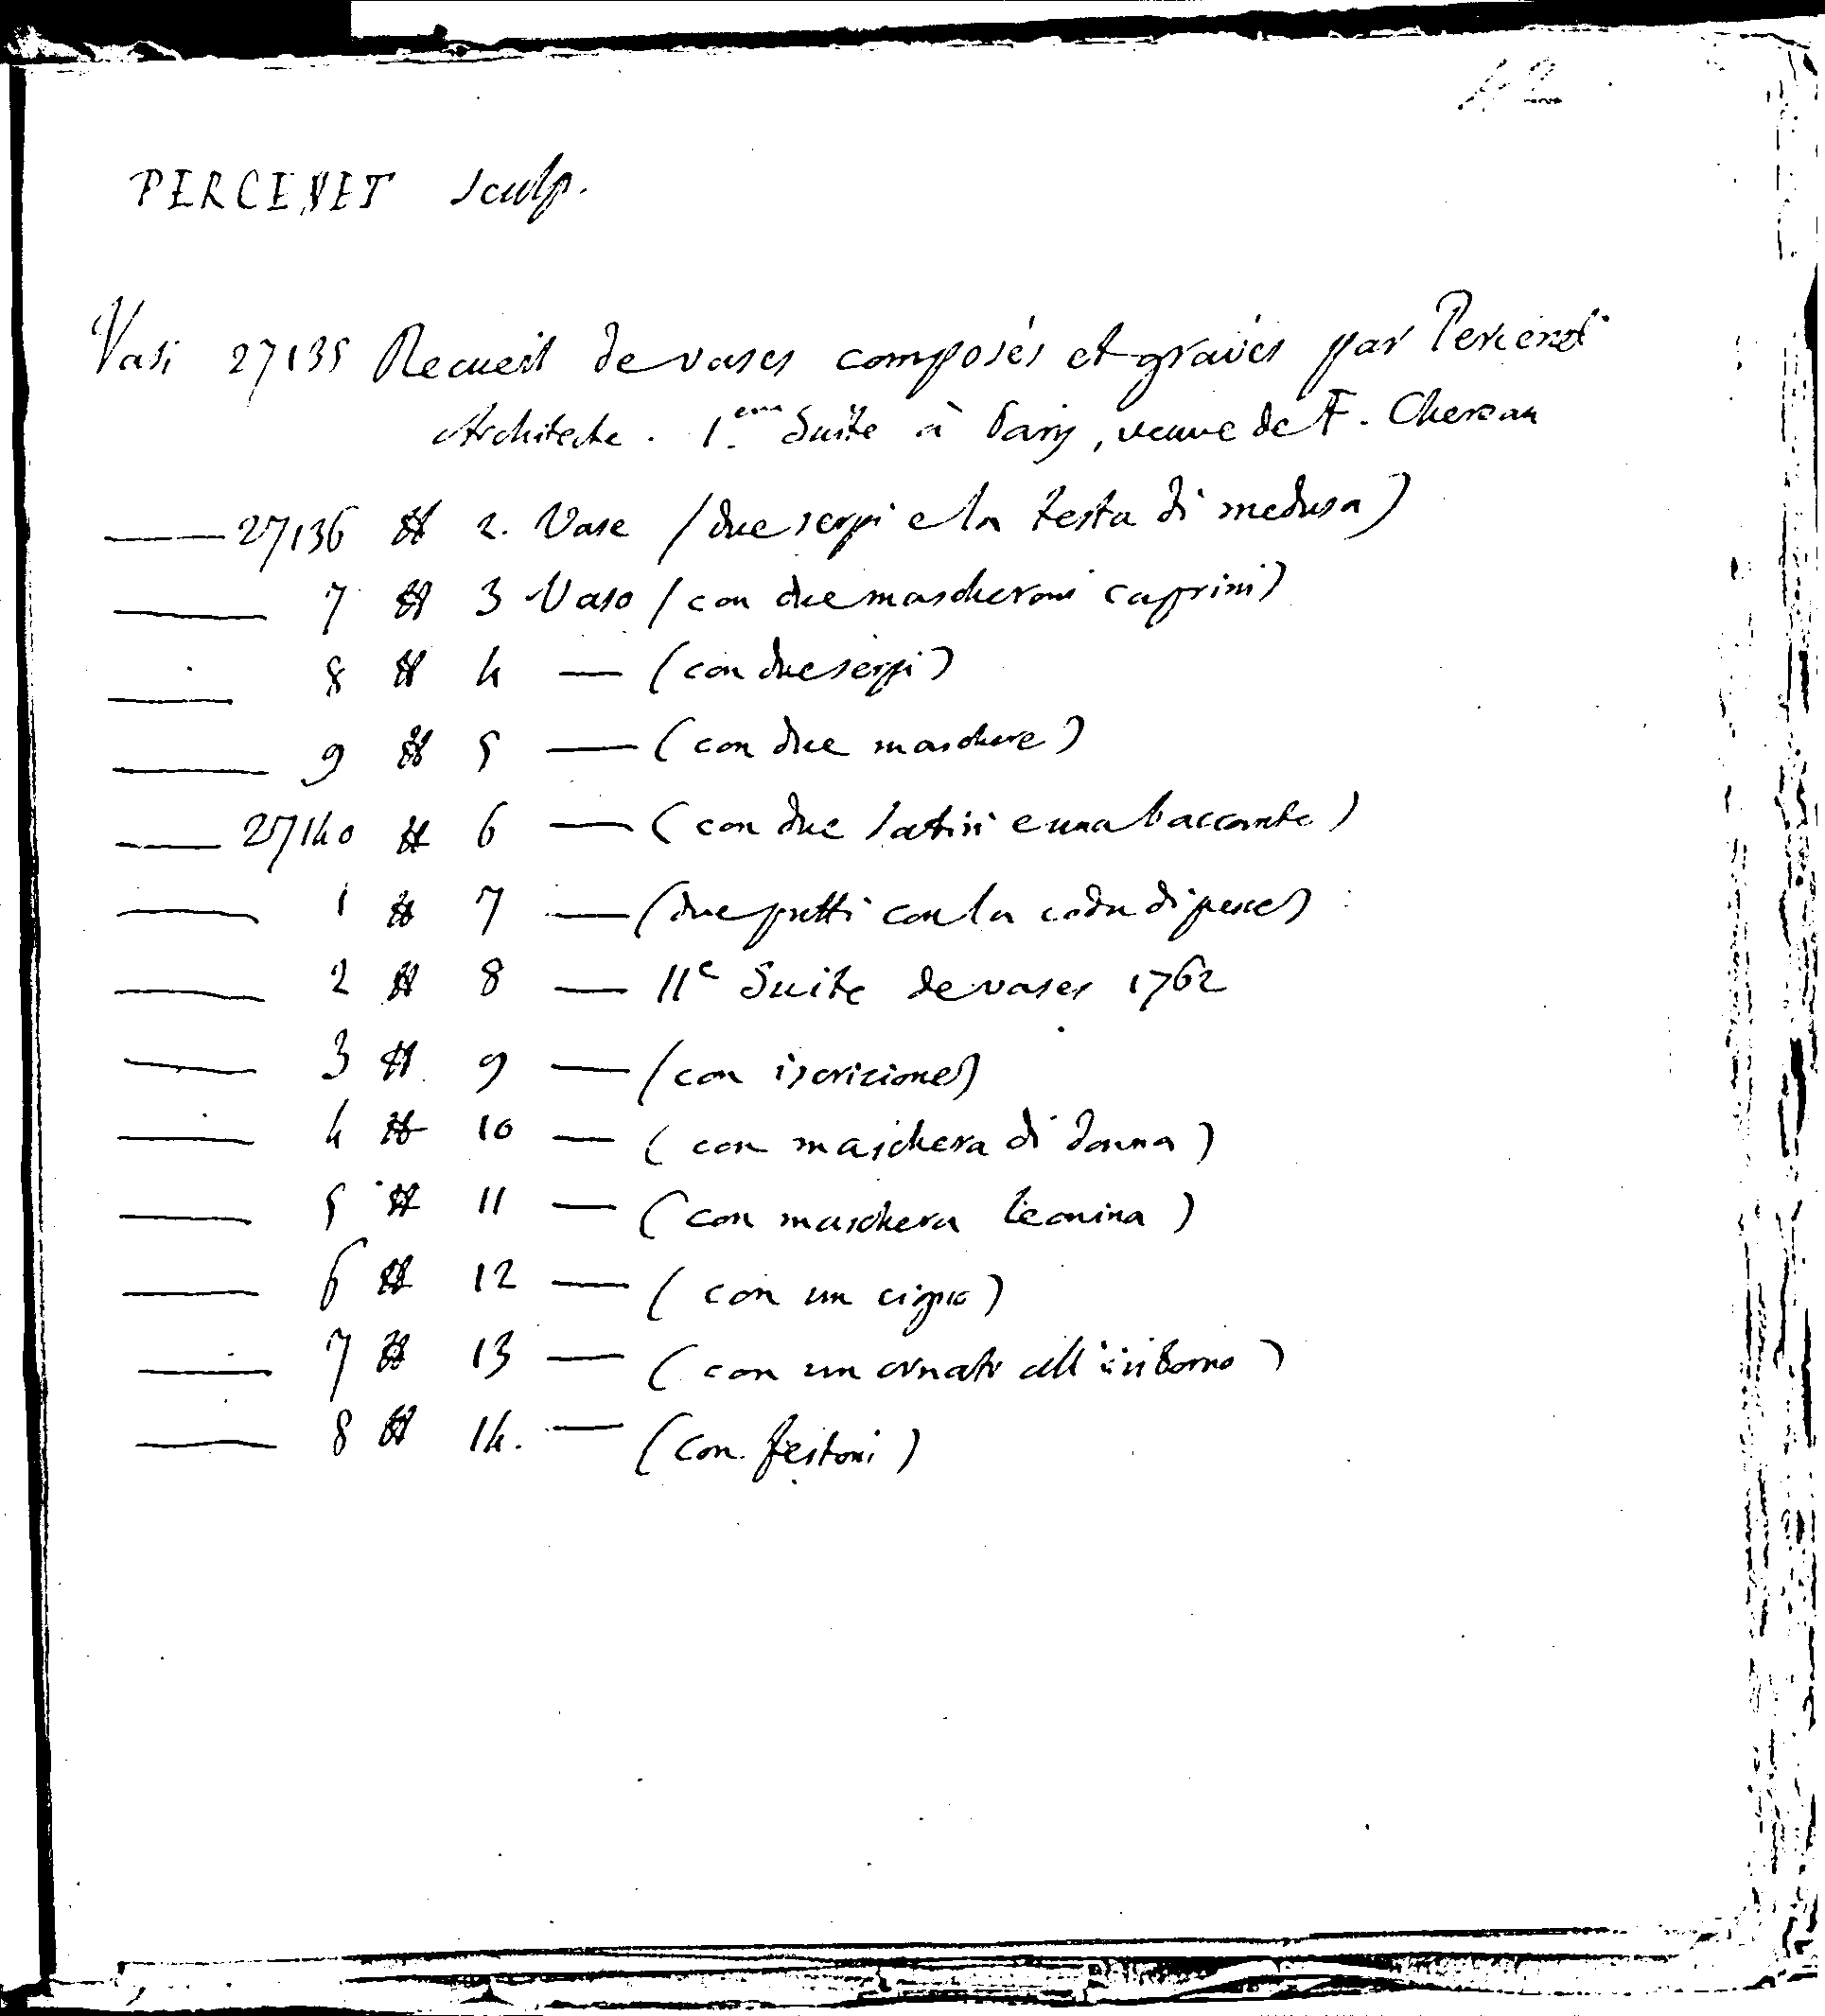 42
PERCENET sculp.
Vasi 27135 Recueil de vases composés et gravés par Percenet
Architecte. 1.ere Suite à Paris, veuve de F. Chereau
—— 27136 # 2. Vase (due serpi e la testa di medusa)
—— 7 # 3 Vaso (con due mascheroni caprini)
—— 8 # 4 — (con due serpi)
—— 9 # 5 — (con due maschere)
—— 27140 # 6 — (con due satiri e una baccante)
—— 1 # 7 — (due putti con la coda di pesce)
—— 2 # 8 — IIe Suite de vases 1762
—— 3 # 9 — (con iscrizione)
—— 4 # 10 — (con maschera di donna)
—— 5 # 11 — (con maschera leonina)
—— 6 # 12 — (con un cigno)
—— 7 # 13 — (con un ornato all'intorno)
—— 8 # 14. — (con festoni)